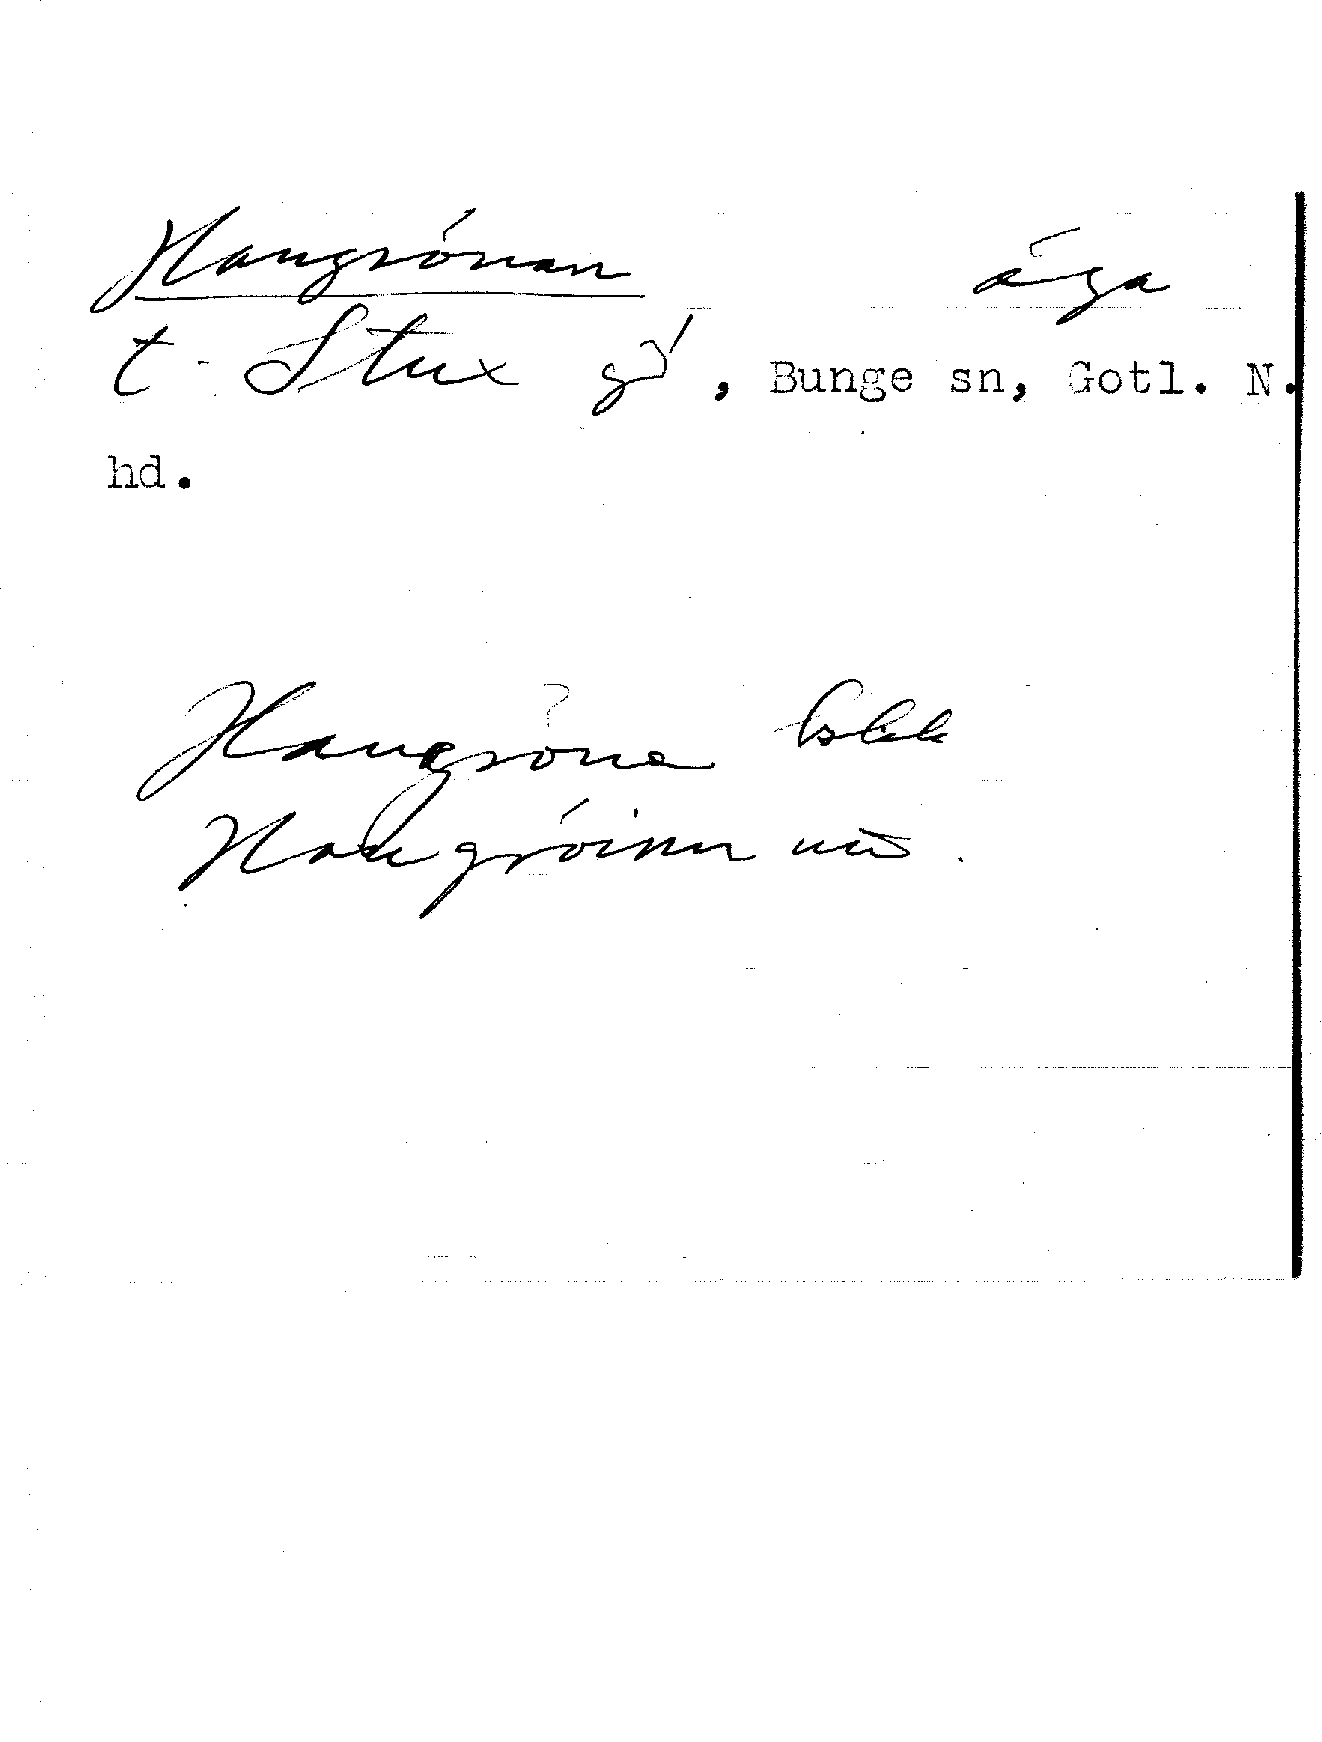 Haugrónan åga
t. Stux gd, Bunge sn, Gotl. N.
hd.
Haugrona
Haugróinn